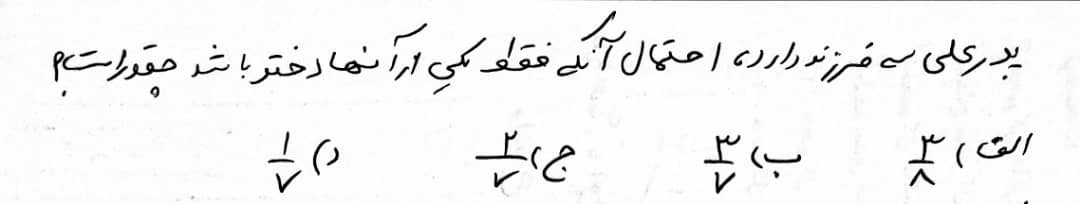 پدر علی سه فرزند دارد، احتمال آنکه فقط یکی از آنها دختر باشد چقدر است؟
الف) ۳/۸ ب) ۳/۷ ج) ۲/۷ د) ۱/۷